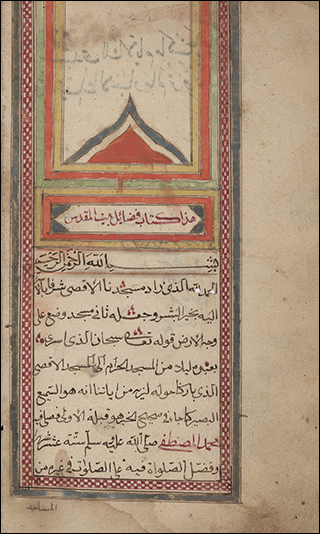 هذا كتاب فضايل بيت المقدس
بسم الله الرحمن الرحيم
الحمد لله الذي زاد مسجدنا الاقصى شرفا
اليه بخير البشر وجعله ثاني مسجد وضع على
وجه الارض قوله تعالى سبحان الذي اسرى
بعبده ليلا من المسجد الحرام الى المسجد الاقصى
الذي باركنا حوله لنريه من اياتنا انه هو السميع
البصير كما جاء في صحيح الخبر هو قبلة الاولى
محمد المصطفى صلى الله عليه وسلم ستة عشر شهرا
وفضل الصلواة فيه على الصلواة في غيره من
المساجد